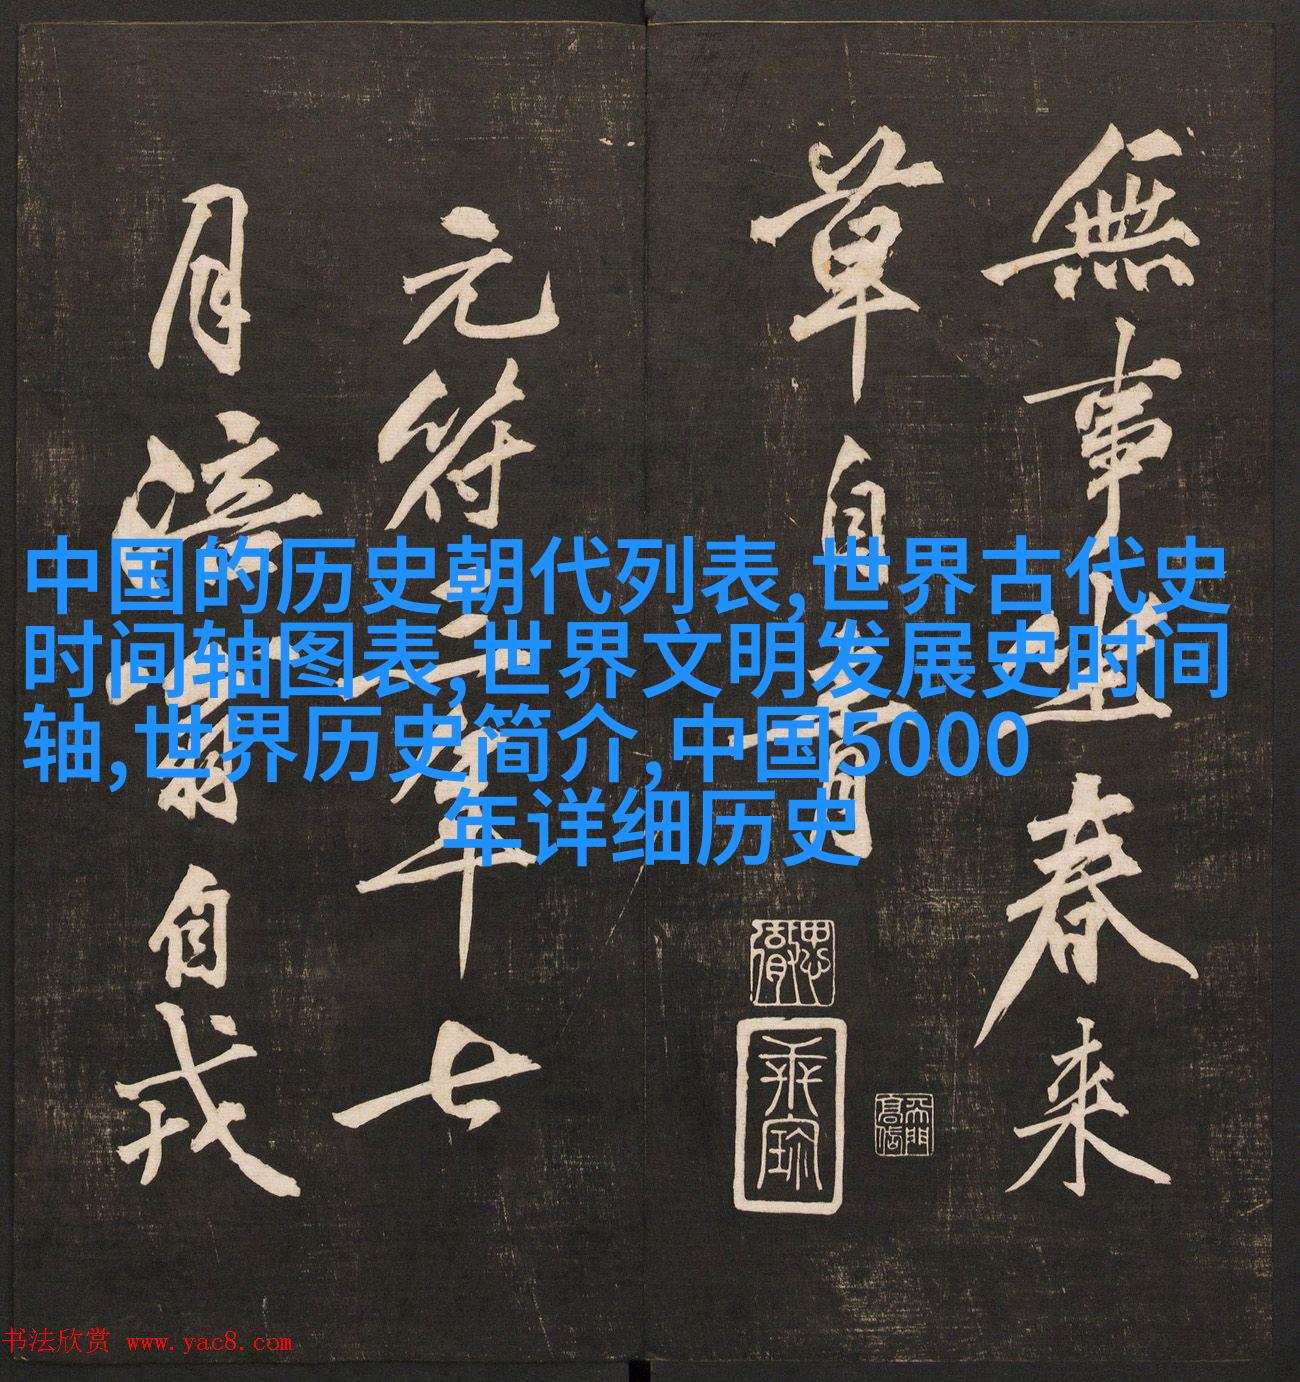 中国的历史朝代列表,世界古代史
时间轴图表,世界文明发展史时间
轴,世界历史简介,中国5000
年详细历史
無事坐春来
草自青
元符三年七
月涪翁自戎
书法欣赏 www.yac8.com